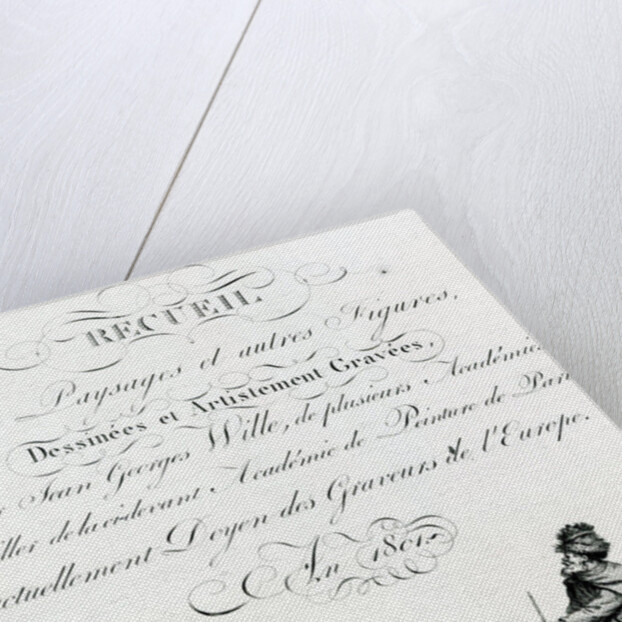 RECUEIL
Paysages et autres Figures,
Dessinées et Artistement Gravées,
Jean Georges Wille, de plusieurs Académies
ller de la ci-devant Académie de Peinture de Par
ctuellement Doyen des Graveurs de l'Europe.
In 1801.